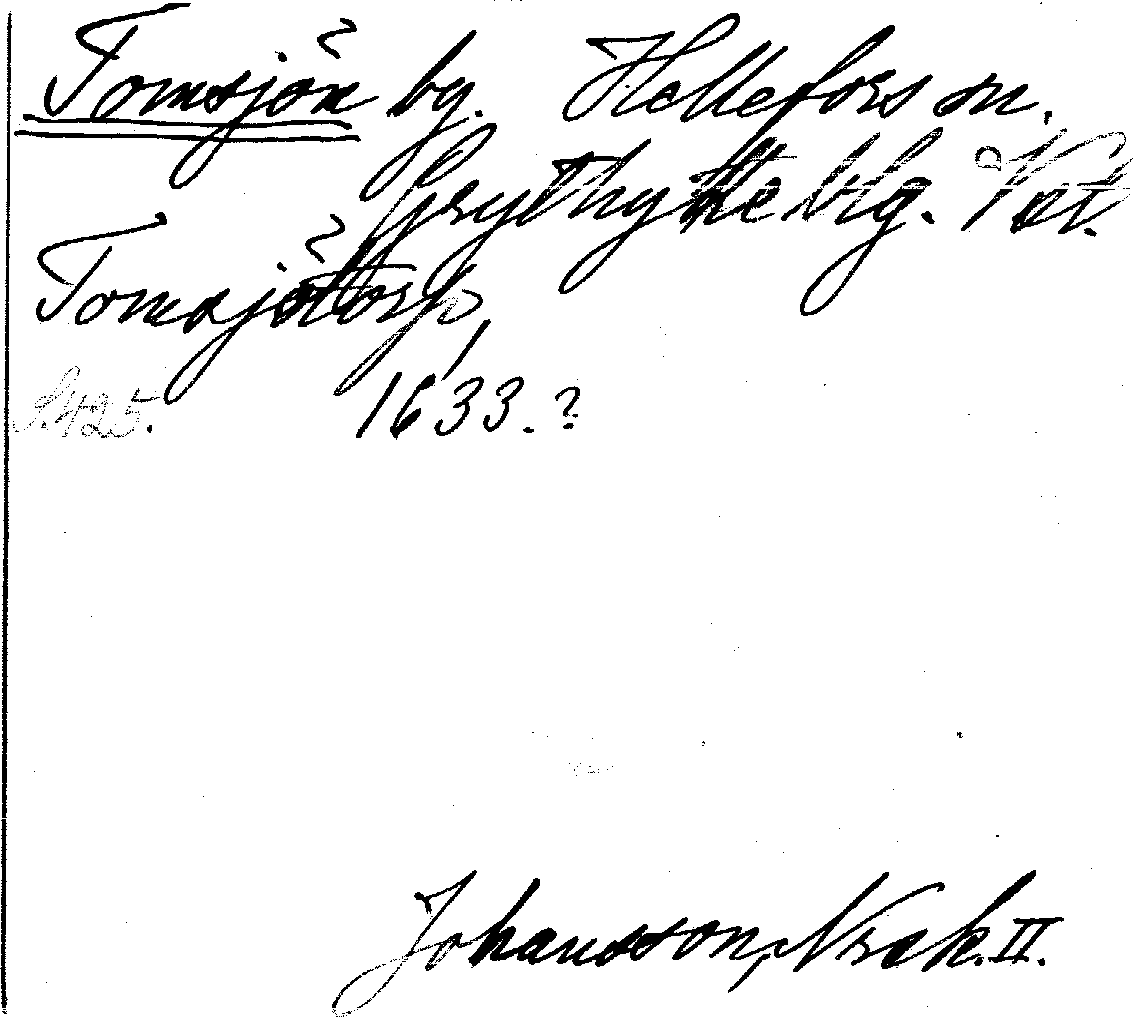 Tomsjön by. Hellefors sn.
Grythytte blg. Vst.
Tomsjötorp,
S.425. 1633.?
Johansson, Nrak. II.